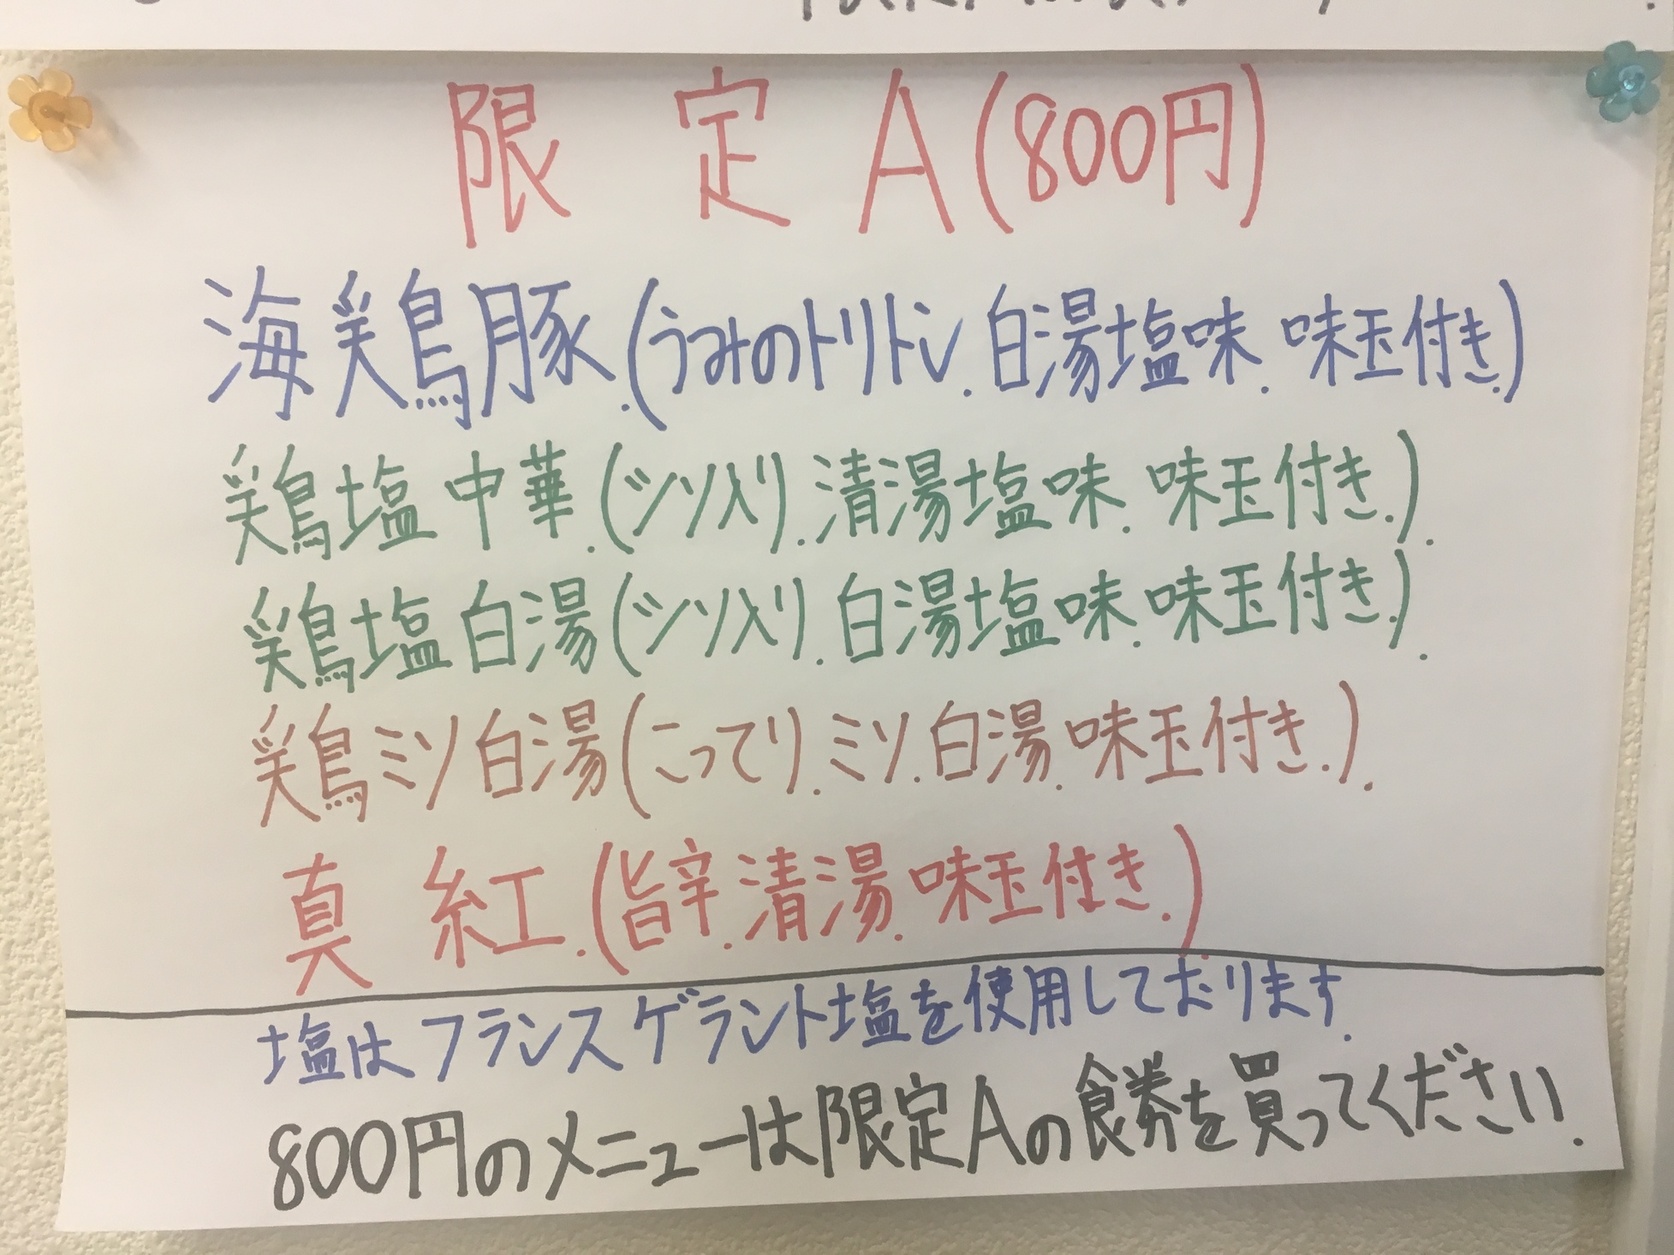 限定A(800円)
海鶏豚.(うみのトリトン.白湯塩味.味玉付き.)
鶏塩中華.(シソ入り.清湯塩味.味玉付き.).
鶏塩白湯(シソ入り.白湯塩味.味玉付き.).
鶏ミソ白湯(こってり.ミソ.白湯.味玉付き.).
真紅.(旨辛.清湯.味玉付き.)
塩はフランスゲラント塩を使用しております.
800円のメニューは限定Aの食券を買ってください.